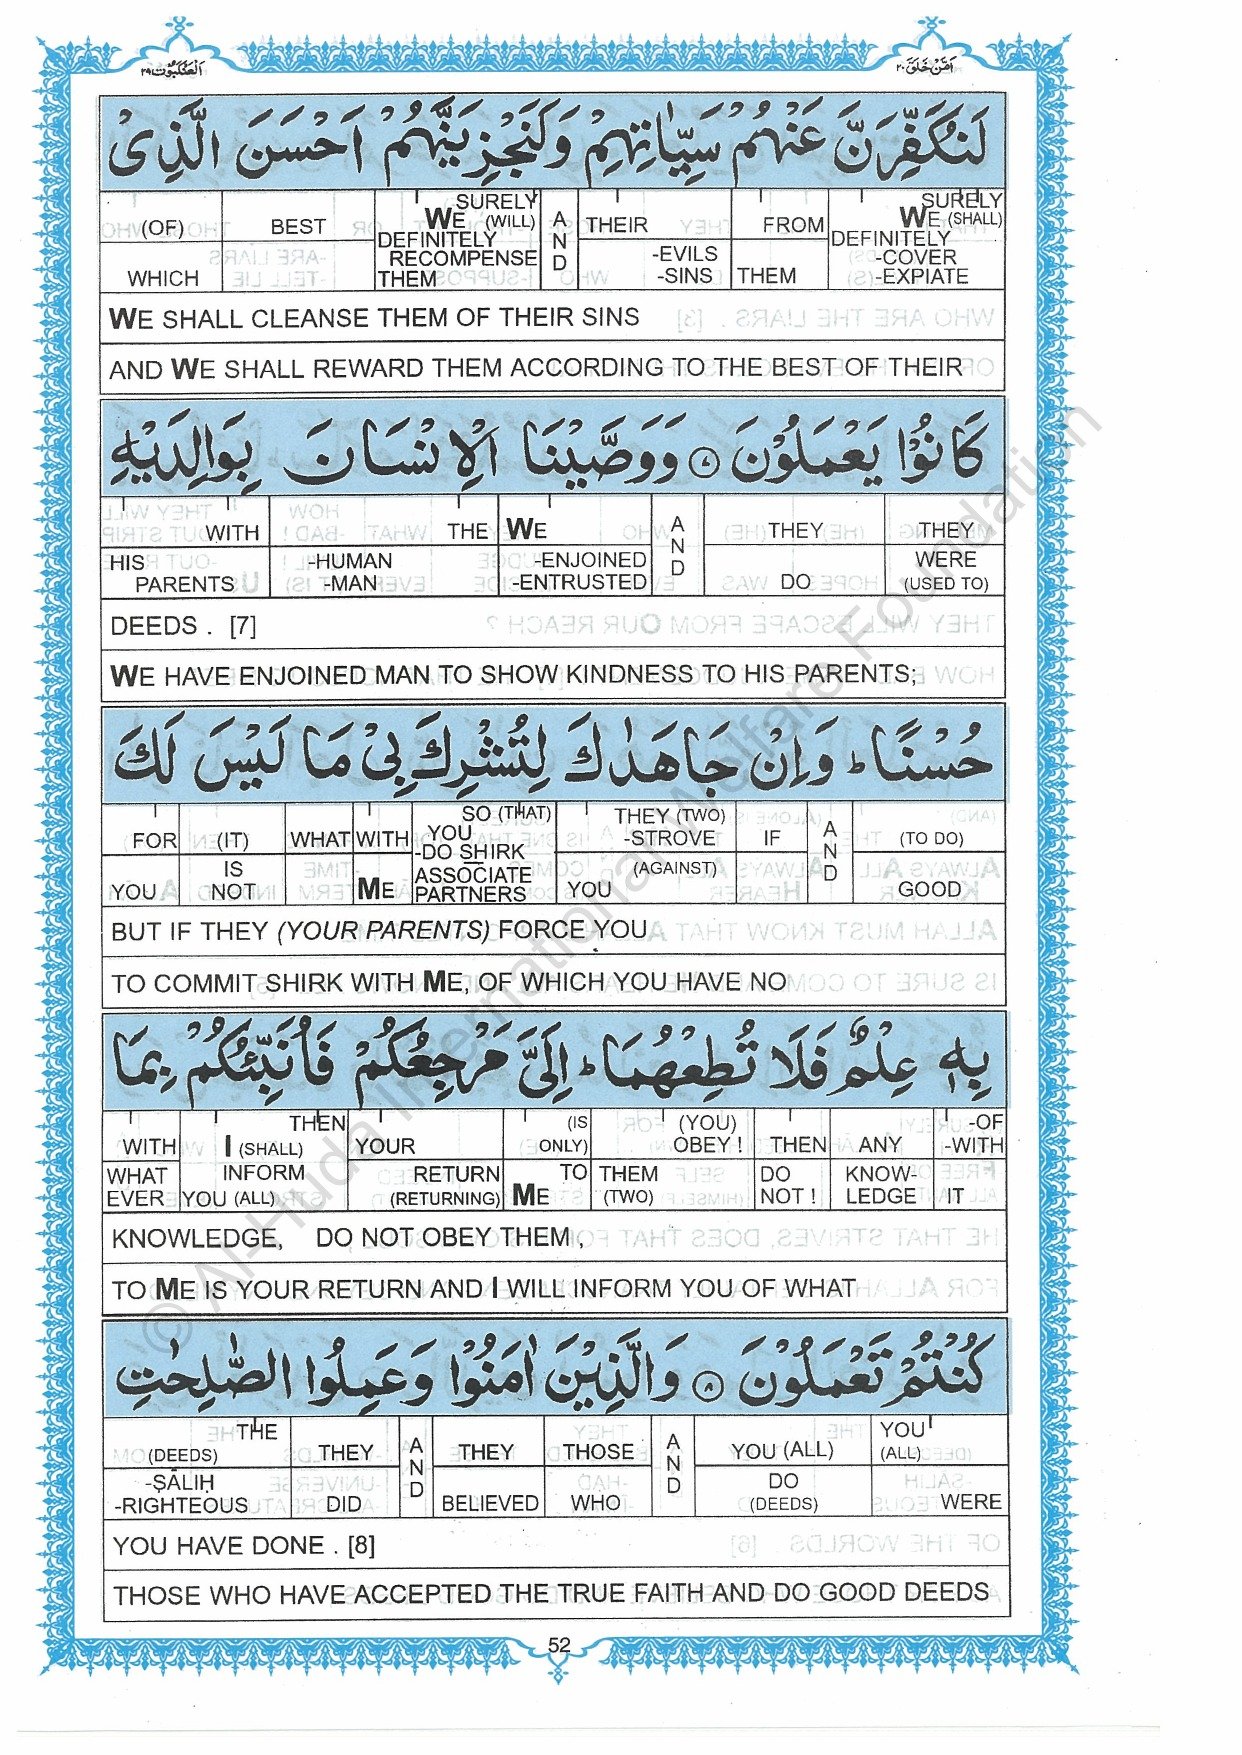 العنكبوت ٢٩
امّن خلق ٢٠
لَنُكَفِّرَنَّ عَنْهُمْ سَيِّاٰتِهِمْ وَلَنَجْزِيَنَّهُمْ اَحْسَنَ الَّذِىْ
SURELY WE (SHALL) DEFINITELY -COVER -EXPIATE
FROM THEM
THEIR -EVILS -SINS
AND
SURELY WE (WILL) DEFINITELY RECOMPENSE THEM
BEST
(OF) WHICH
WE SHALL CLEANSE THEM OF THEIR SINS
AND WE SHALL REWARD THEM ACCORDING TO THE BEST OF THEIR
كَانُوْا يَعْمَلُوْنَ ٧ وَوَصَّيْنَا الْاِنْسَانَ بِوَالِدَيْهِ
THEY WERE (USED TO)
THEY DO
AND
WE -ENJOINED -ENTRUSTED
THE -HUMAN -MAN
WITH HIS PARENTS
DEEDS . [7]
WE HAVE ENJOINED MAN TO SHOW KINDNESS TO HIS PARENTS;
حُسْنًا ط وَاِنْ جَاهَدٰكَ لِتُشْرِكَ بِىْ مَا لَيْسَ لَكَ
(TO DO) GOOD
AND
IF
THEY (TWO) -STROVE (AGAINST) YOU
SO (THAT) YOU -DO SHIRK ASSOCIATE PARTNERS
WITH ME
WHAT
(IT) IS NOT
FOR YOU
BUT IF THEY (YOUR PARENTS) FORCE YOU
TO COMMIT SHIRK WITH ME, OF WHICH YOU HAVE NO
بِهٖ عِلْمٌ فَلَا تُطِعْهُمَا ط اِلَىَّ مَرْجِعُكُمْ فَاُنَبِّئُكُمْ بِمَا
-OF -WITH IT
ANY KNOW-LEDGE
THEN DO NOT !
(YOU) OBEY ! THEM (TWO)
(IS ONLY) TO ME
YOUR RETURN (RETURNING)
THEN I (SHALL) INFORM YOU (ALL)
WITH WHAT EVER
KNOWLEDGE, DO NOT OBEY THEM ,
TO ME IS YOUR RETURN AND I WILL INFORM YOU OF WHAT
كُنْتُمْ تَعْمَلُوْنَ ٨ وَالَّذِيْنَ اٰمَنُوْا وَعَمِلُوا الصّٰلِحٰتِ
YOU (ALL) WERE
YOU (ALL) DO (DEEDS)
AND
THOSE WHO
THEY BELIEVED
AND
THEY DID
THE (DEEDS) -ṢĀLIḤ -RIGHTEOUS
YOU HAVE DONE . [8]
THOSE WHO HAVE ACCEPTED THE TRUE FAITH AND DO GOOD DEEDS
52
© Al-Huda International Welfare Foundation